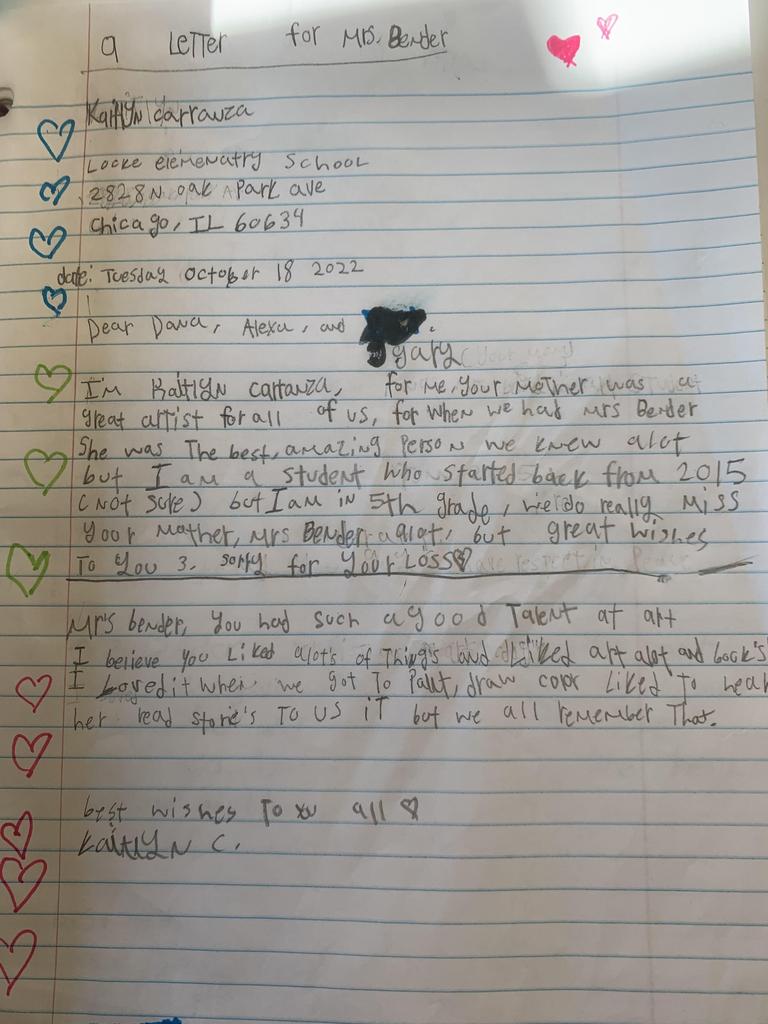 a Letter for Mrs. Bender
Kaitlyn Carranza
Locke elementry School
2828 N oak Park ave
Chicago, IL 60634
date: Tuesday October 18 2022
Dear Dana, Alexa, and
gary
I'm Kaitlyn Carranza, for me, your Mother was a
great artist for all of us, for when we had Mrs Bender
She was The best, amazing Person we knew alot
but I am a student who started back from 2015
(not sure) but I am in 5th grade, we do really miss
your Mother, Mrs Bender alot, but great wishes
To you 3. sorry for your Loss
Mr's bender, you had such a good Talent at art
I believe you Liked alot's of Thing's and Liked art alot and book's
I Loved it when we got To Paint, draw color Liked To hear
her read storie's TO US IT but we all remember That.
best wishes To all
Kaitlyn C.